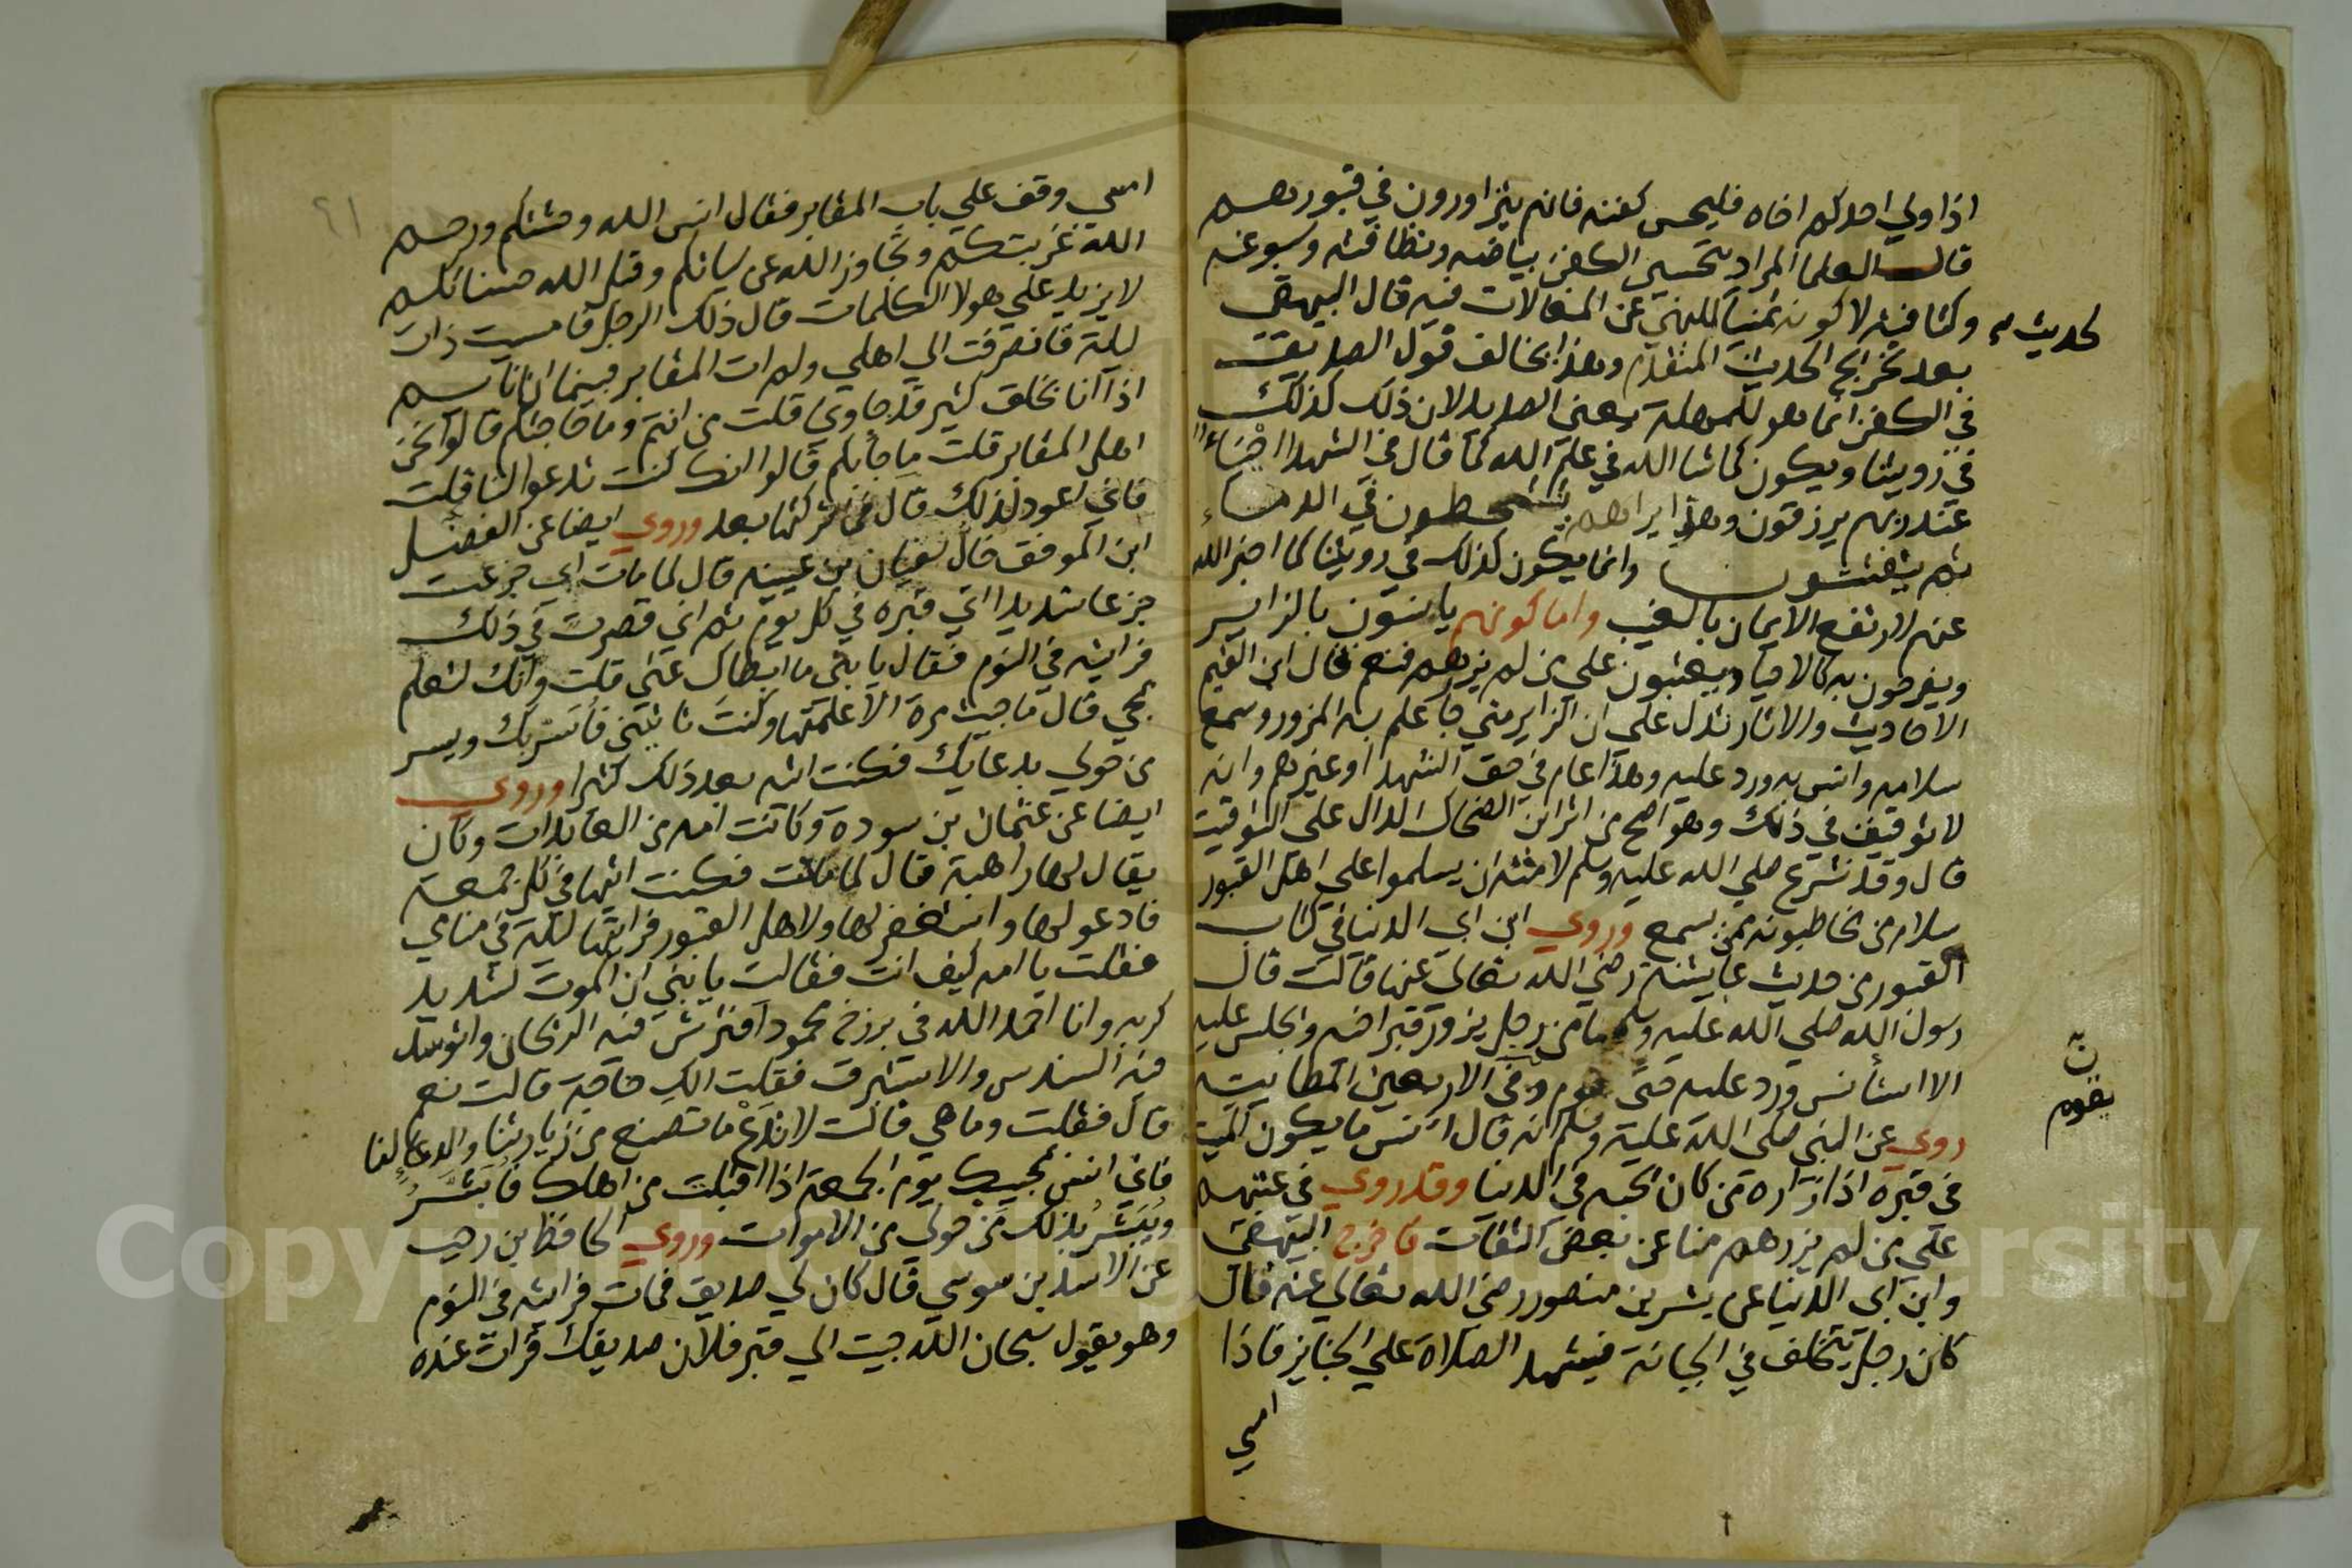 اذا ولي احدكم اخاه فليحسن كفنه فانهم يتزاورون في قبورهم
قال العلما المراد بتحسين الكفن بياضه ونظافته وسبوغه
وكثافته لا كونه ثمينا للنهي عن المغالات فيه قال البيهقي
لحديث
بعد تخريج الحديث المتقدم وهذا لا يخالف قول الصديق
في الكفن انما هو للمهلة يعني الصديد لان ذلك كذلك
في رويتنا ويكون كما شا الله في علم الله كما قال في الشهدا احياء
عند ربهم يرزقون وهو ايراهم يتشحطون في الدماء
ثم يتفتتون وانما يكون كذلك في رويتنا كما اخبر الله
عنهم لارتفع الايمان بالغيب واما كونهم يانسون بالزاير
ويفرحون به كالاحيا ويعتبون على من لم يزرهم فنعم قال ابن القيم
الاحاديث والاثار تدل على ان الزاير متي جا علم به المزور وسمع
سلامه وانس به ورد عليه وهذا عام في حق الشهدا وغيرهم وانه
لا توقيت في ذلك وهو اصح من اثر ابن الضحاك الدال على التوقيت
قال وقد شرع صلي الله عليه وسلم لامته ان يسلموا علي اهل القبور
سلام من يخاطبونه ممن يسمع وروي ابن ابي الدنيا في كتاب
القبور من حديث عايشة رضي الله تعالي عنها قالت قال
رسول الله صلي الله عليه وسلم ما من رجل يزور قبر اخيه ويجلس عليه
الا استأنس ورد عليه حتى يقوم وفي الاربعين الطايية
ن
يقوم
روي عن النبي صلي الله عليه وسلم انه قال انس ما يكون الميت
في قبره اذا زاره من كان يحبه في الدنيا وقد روي في عتبهم
علي من لم يزرهم منا عن بعض الثقات فاخرج البيهقي
وابن ابي الدنيا عن بشر بن منصور رضي الله تعالي عنه قال
كان رجل يتخلف في الجبانة فيشهد الصلاة علي الجنايز فاذا
امسي
٦١
امسي وقف علي باب المقابر فقال انس الله وحشتكم ورحم
الله غربتكم وتجاوز الله عن سياتكم وقبل الله حسناتكم
لا يزيد علي هولا الكلمات قال ذلك الرجل فامسيت ذات
ليلة فانصرفت الي اهلي ولم ات المقابر فبينما انا نايم
اذا انا بخلق كثير قد جاوني قلت من انتم وما حاجتكم قالوا نحن
اهل المقابر قلت ما جأبكم قالوا انك كنت تدعو لنا قلت
فاني اعود لذلك قال فما تركتها بعد وروي ايضا عن الفضل
ابن الموفق خال سفيان بن عيينه قال لما مات ابي جزعت
جزعا شديدا اتي قبره في كل يوم ثم اني قصرت في ذلك
فرايته في النوم فقال يا بني ما ابطاك عني قلت وانك لتعلم
بمجي قال ما جيت مرة الا علمتها وكنت تاتيني فاستر بك ويسر
من حولي بدعايك فكنت اتيه بعد ذلك كثيرا وروي
ايضا عن عثمان بن سودة وكانت امه من العابدات وكان
يقال لها راهبة قال لما ماتت فكنت اتيها في كل جمعة
فادعو لها واستغفر لها ولاهل القبور فرايتها ليلة في منامي
فقلت يا امه كيف انت فقالت يا بني ان الموت لشديد
كربه وانا احمد الله في برزخ محمود افترش فيه الريحان واتوسد
فيه السندس والاستبرق فقلت الك حاجة قالت نعم
قال فقلت وما هي قالت لا تدع ما تصنع من زيارتنا والدعا لنا
فاني انس بمجيك يوم الجمعة اذا اقبلت من اهلك فابشر
ويبشر بذلك من حولي من الاموات وروي الحافظ ابن رجب
عن الاسد بن موسي قال كان لي صديق فمات فرايته في النوم
وهو يقول سبحان الله جيت الي قبر فلان صديقك قرات عنده